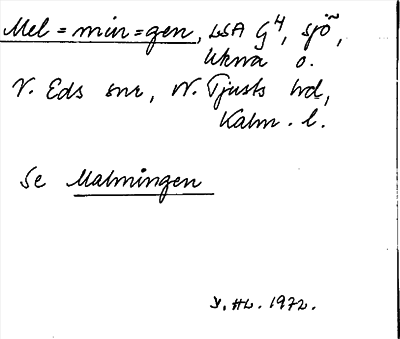 Mel = min = gen, LSA G4, sjö,
Ukna o.
V. Eds snr, N. Tjusts hd,
Kalm. l.
Se Malmingen
HL. 1972.